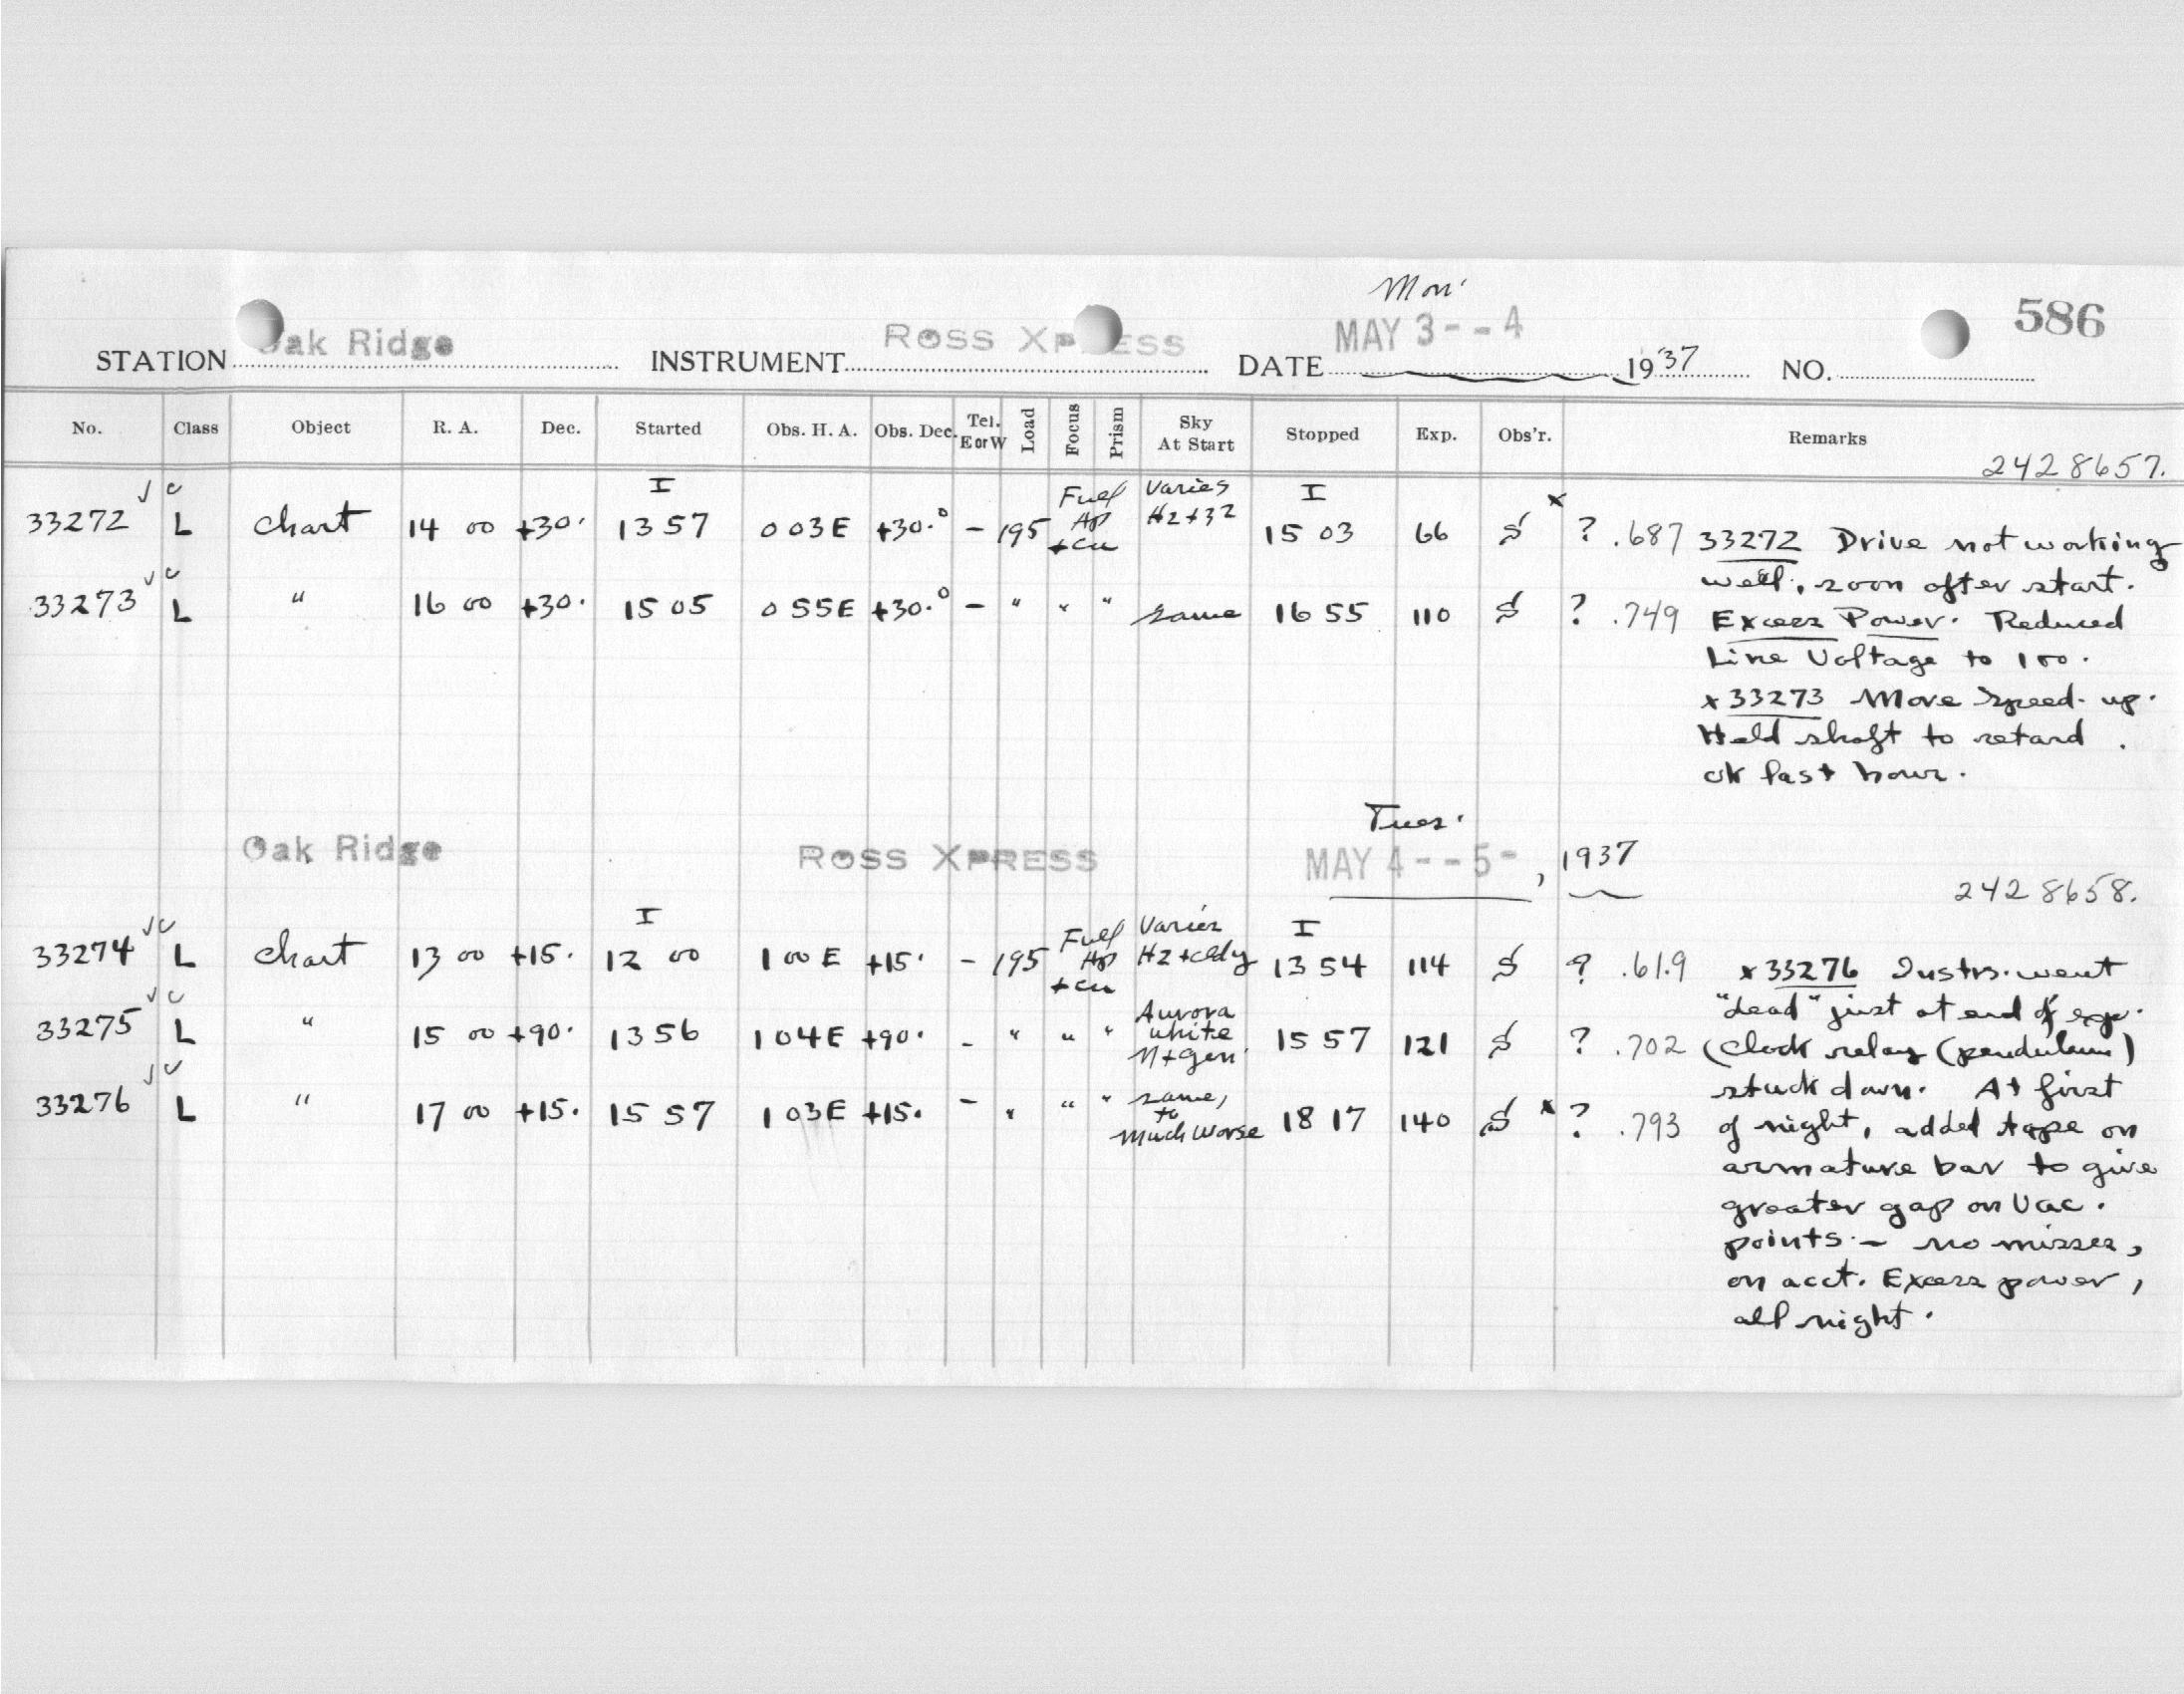 Mon.
586
STATION Oak Ridge INSTRUMENT ROSS XPRESS DATE MAY 3 - - 4 1937 NO.
No. Class Object R. A. Dec. Started Obs. H. A. Obs. Dec. Tel. E or W Load Focus Prism Sky At Start Stopped Exp. Obs'r. Remarks
2428657.
33272 √ c L Chart 14 00 +30. I 13 57 0 03E +30.° - 195 Full Ap + cu Varies Hz + 3 2 I 15 03 66 S x ? .687 33272 Drive not working
well, soon after start.
33273 √ c L " 16 00 +30. 15 05 0 55E +30.° - " " " same 16 55 110 S ? .749 Excess Power. Reduced
Line Voltage to 100.
x 33273 More Speed-up.
Held shaft to retard.
ok last hour.
Tues.
Oak Ridge ROSS XPRESS MAY 4 - - 5 -, 1937
2428658.
33274 √ c L Chart 13 00 +15. I 12 00 1 00 E +15. - 195 Full Ap + cu Varies Hz + cldy I 13 54 114 S ? .619 x 33276 Instrs. went
"dead" just at end of exp.
33275 √ c L " 15 00 +90. 13 56 1 04E +90. - " " " Aurora white N + gen. 15 57 121 S ? .702 (Clock relay (pendulum)
stuck down. At first
33276 √ c L " 17 00 +15. 15 57 1 03E +15. - " " " same, to much worse 18 17 140 S x ? .793 of night, added tape on
armature bar to give
greater gap on Vac.
points. — no misses,
on acct. Excess power,
all night.